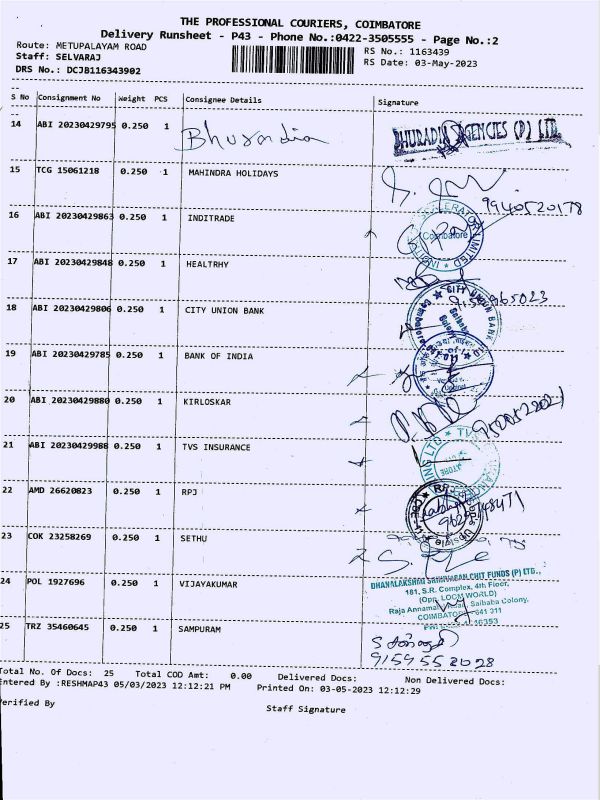 THE PROFESSIONAL COURIERS, COIMBATORE
Delivery Runsheet - P43 - Phone No.:0422-3505555 - Page No.:2
Route: METUPALAYAM ROAD
RS No.: 1163439
Staff: SELVARAJ
RS Date: 03-May-2023
DRS No.: DCJB116343902
S No Consignment No Weight PCS Consignee Details Signature
14 ABI 20230429795 0.250 1 Bhuradia BHURADIA AGENCIES (P) LTD.
15 TCG 15061218 0.250 1 MAHINDRA HOLIDAYS
9940520178
16 ABI 20230429863 0.250 1 INDITRADE
Coimbatore
17 ABI 20230429848 0.250 1 HEALTRHY
18 ABI 20230429806 0.250 1 CITY UNION BANK
19 ABI 20230429785 0.250 1 BANK OF INDIA
20 ABI 20230429880 0.250 1 KIRLOSKAR
21 ABI 20230429988 0.250 1 TVS INSURANCE
22 AMD 26620823 0.250 1 RPJ
23 COK 23258269 0.250 1 SETHU
24 POL 1927696 0.250 1 VIJAYAKUMAR
DHANALAKSHMI SRINIVASAN CHIT FUNDS (P) LTD.,
181, S.R. Complex, 4th Floor,
(Opp. LOCM WORLD)
Raja Annamalai Saibaba Colony,
COIMBATORE 641 311
25 TRZ 35460645 0.250 1 SAMPURAM
9159552028
Total No. Of Docs: 25 Total COD Amt: 0.00 Delivered Docs: Non Delivered Docs:
Entered By :RESHMAP43 05/03/2023 12:12:21 PM Printed On: 03-05-2023 12:12:29
Verified By Staff Signature